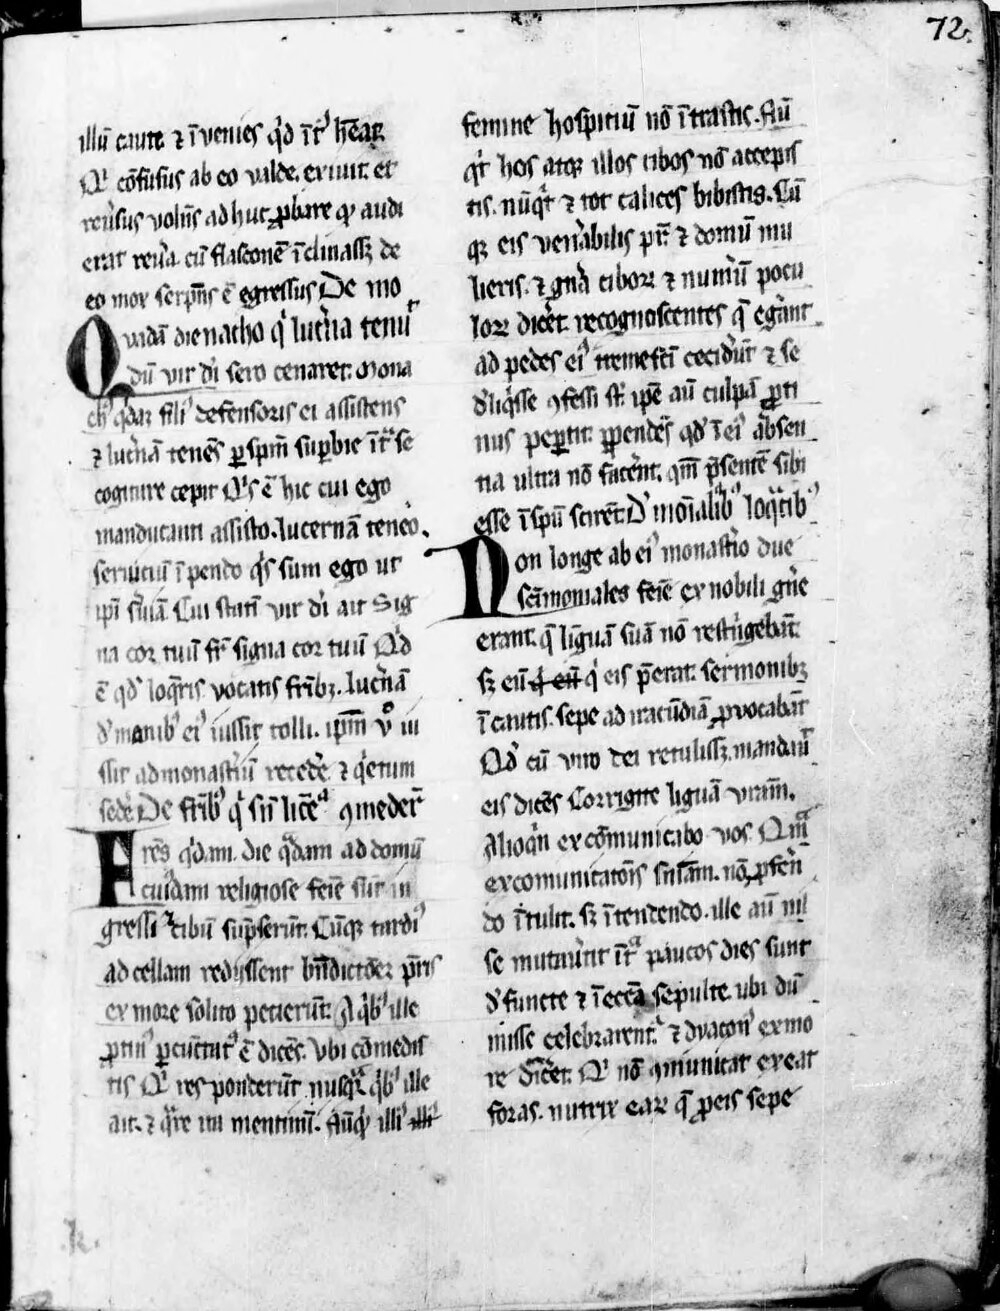 72
illū caute ⁊ īvenies qͥd īt᷒ hēat.
Qͥ cōfusus ab eo valde. exivit. et
reu͛sus volēs ad huc ꝓbare qͥ audi
erat reu͛a cū flasconē īclinassꝫ de
eo mox serpēs ē egressus De mo
Quadā die nacho qͥ luc͛na tenu͛
dū vir dī sero cenaret. Mona
chꝰ qͥdaꝫ filiꝰ defensoris ei assistens
⁊ luc͛nā tenēs ꝑ spm̄ suꝑbie īt᷒ se
cogitare cepit Qͥs ē hic cui ego
manducanti assisto. lucernā teneo.
seruiciū īpendo qͥs sum ego ut
ipī s͛uiā Cui statī vir dī ait Sig
na cor tuū fr̄ signa cor tuū Qͥd
ē qd̕ loq͛ris vocatis frībꝫ. luc͛nā
d̕ manibꝰ eiꝰ iussit tolli. ipm̄ vͦ iu
ssit ad monast͛iū recede͛ ⁊ qͥetum
sede͛ De frībꝰ qͥ sn̄ licēͣ ꝯmeder̄
Frēs qͥdam. die qͣdam ad domū
cuiꝰdam religiose feīe sūt in
gressi ⁊ cibū sūpserūt. Cūqꝫ tardiꝰ
ad cellam redyssent bn̄dictōeꝫ pr̄is
ex more solito pecierūt. A qͥbꝰ ille
ꝓtinꝰ ꝑcūctatꝰ ē dicēs. Vbi comedis
tis Qͥ res ponderūt nusqͣ qͥbꝰ ille
ait. ⁊ qͣre mi mentimī. Nūqͥd illiꝰ illiꝰ
femine hospitiū nō ītrastis. Nū
qͥd hos atqꝫ illos cibos nō accepis
tis. nūqͥd ⁊ tot calices bibistis. Cū
qꝫ eis ven͛abilis pr̄ ⁊ domū mu
lieris. ⁊ gn͛a ciboꝝ ⁊ num͛ū pocu
loꝝ dic͛et. recognoscentes q̄ eg͛ant
ad pedes eiꝰ tremefcī cecid͛ūt ⁊ se
d̕liqͥsse ꝯfessi st̄. ipē aū culpā ꝓti
nus peꝑcit. ꝑpendēs qd̕ ī eiꝰ absen
tia ultra nō fac͛ent. qm̄ p̄sentē sibi
esse ī spū scirēt. D̕ moīalibꝰ loqͣcibꝰ
Non longe ab eiꝰ monast͛io due
scīmoniales feīe ex nobili gn͛e
erant. q̄ liguā suā nō restrīgebāt.
sꝫ eū qͥ eū qͥ eis p̄erat. sermonibꝫ
īcautis. sepe ad iracūdiā ꝓvocabāt
Qd̕ cū viro dei retulissꝫ. mandauͥt
eis dicēs Corrigite liguā vr̄am.
Alioqͥn excōmunicabo vos Qͣm
excomunicatōis sn̄iam. nō ꝓferē
do ītulit. sꝫ ītendendo. ille aū nil
se mutau͛unt īt᷒ paucos dies sunt
d̕functe ⁊ ī eccā sepulte. ubi dū
misse celebrarentꝰ. ⁊ dyaconꝰ ex mo
re dic͛et. Qͥ nō ꝯmunicat exeat
foras. nutrix eaꝝ q̄ ꝓ eis sepe